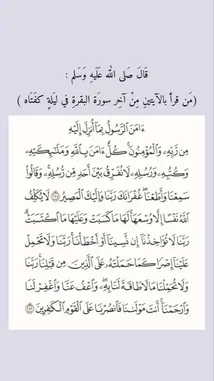 قَالَ صَلى الله عَلَيهِ وَسَلم :
(مَن قرأ بالآيتينِ مِنْ آخِر سورَة البقرةِ في ليَلةٍ كفَتَاه )
ءَامَنَ ٱلرَّسُولُ بِمَآ أُنزِلَ إِلَيْهِ
مِن رَّبِّهِۦ وَٱلْمُؤْمِنُونَ ۚ كُلٌّ ءَامَنَ بِٱللَّهِ وَمَلَـٰٓئِكَتِهِۦ
وَكُتُبِهِۦ وَرُسُلِهِۦ لَا نُفَرِّقُ بَيْنَ أَحَدٍ مِّن رُّسُلِهِۦ ۚ وَقَالُوا۟
سَمِعْنَا وَأَطَعْنَا ۖ غُفْرَانَكَ رَبَّنَا وَإِلَيْكَ ٱلْمَصِيرُ ٢٨٥ لَا يُكَلِّفُ
ٱللَّهُ نَفْسًا إِلَّا وُسْعَهَا ۚ لَهَا مَا كَسَبَتْ وَعَلَيْهَا مَا ٱكْتَسَبَتْ ۗ
رَبَّنَا لَا تُؤَاخِذْنَآ إِن نَّسِينَآ أَوْ أَخْطَأْنَا ۚ رَبَّنَا وَلَا تَحْمِلْ
عَلَيْنَآ إِصْرًا كَمَا حَمَلْتَهُۥ عَلَى ٱلَّذِينَ مِن قَبْلِنَا ۚ رَبَّنَا
وَلَا تُحَمِّلْنَا مَا لَا طَاقَةَ لَنَا بِهِۦ ۖ وَٱعْفُ عَنَّا وَٱغْفِرْ لَنَا
وَٱرْحَمْنَآ ۚ أَنتَ مَوْلَىٰنَا فَٱنصُرْنَا عَلَى ٱلْقَوْمِ ٱلْكَـٰفِرِينَ ٢٨٦